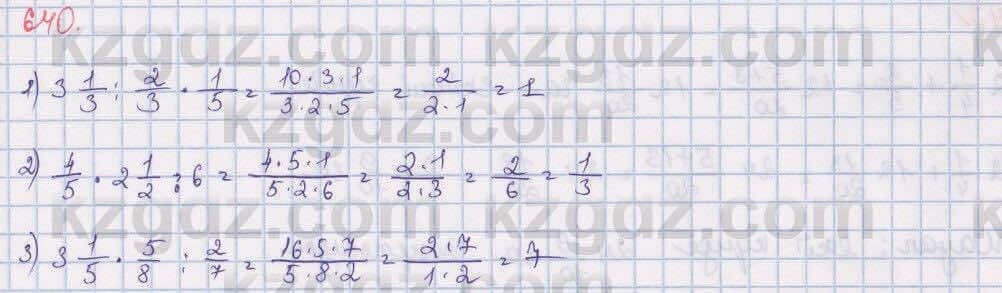 640.
kzgdz.com kzgdz.com
1) 3 1/3 : 2/3 · 1/5 = 10·3·1/3·2·5 = 2/2·1 = 1
kzgdz.com
2) 4/5 · 2 1/2 : 6 = 4·5·1/5·2·6 = 2·1/2·3 = 2/6 = 1/3
kzgdz.com kzgdz.com
3) 3 1/5 · 5/8 : 2/7 = 16·5·7/5·8·2 = 2·7/1·2 = 7
kzgdz.com